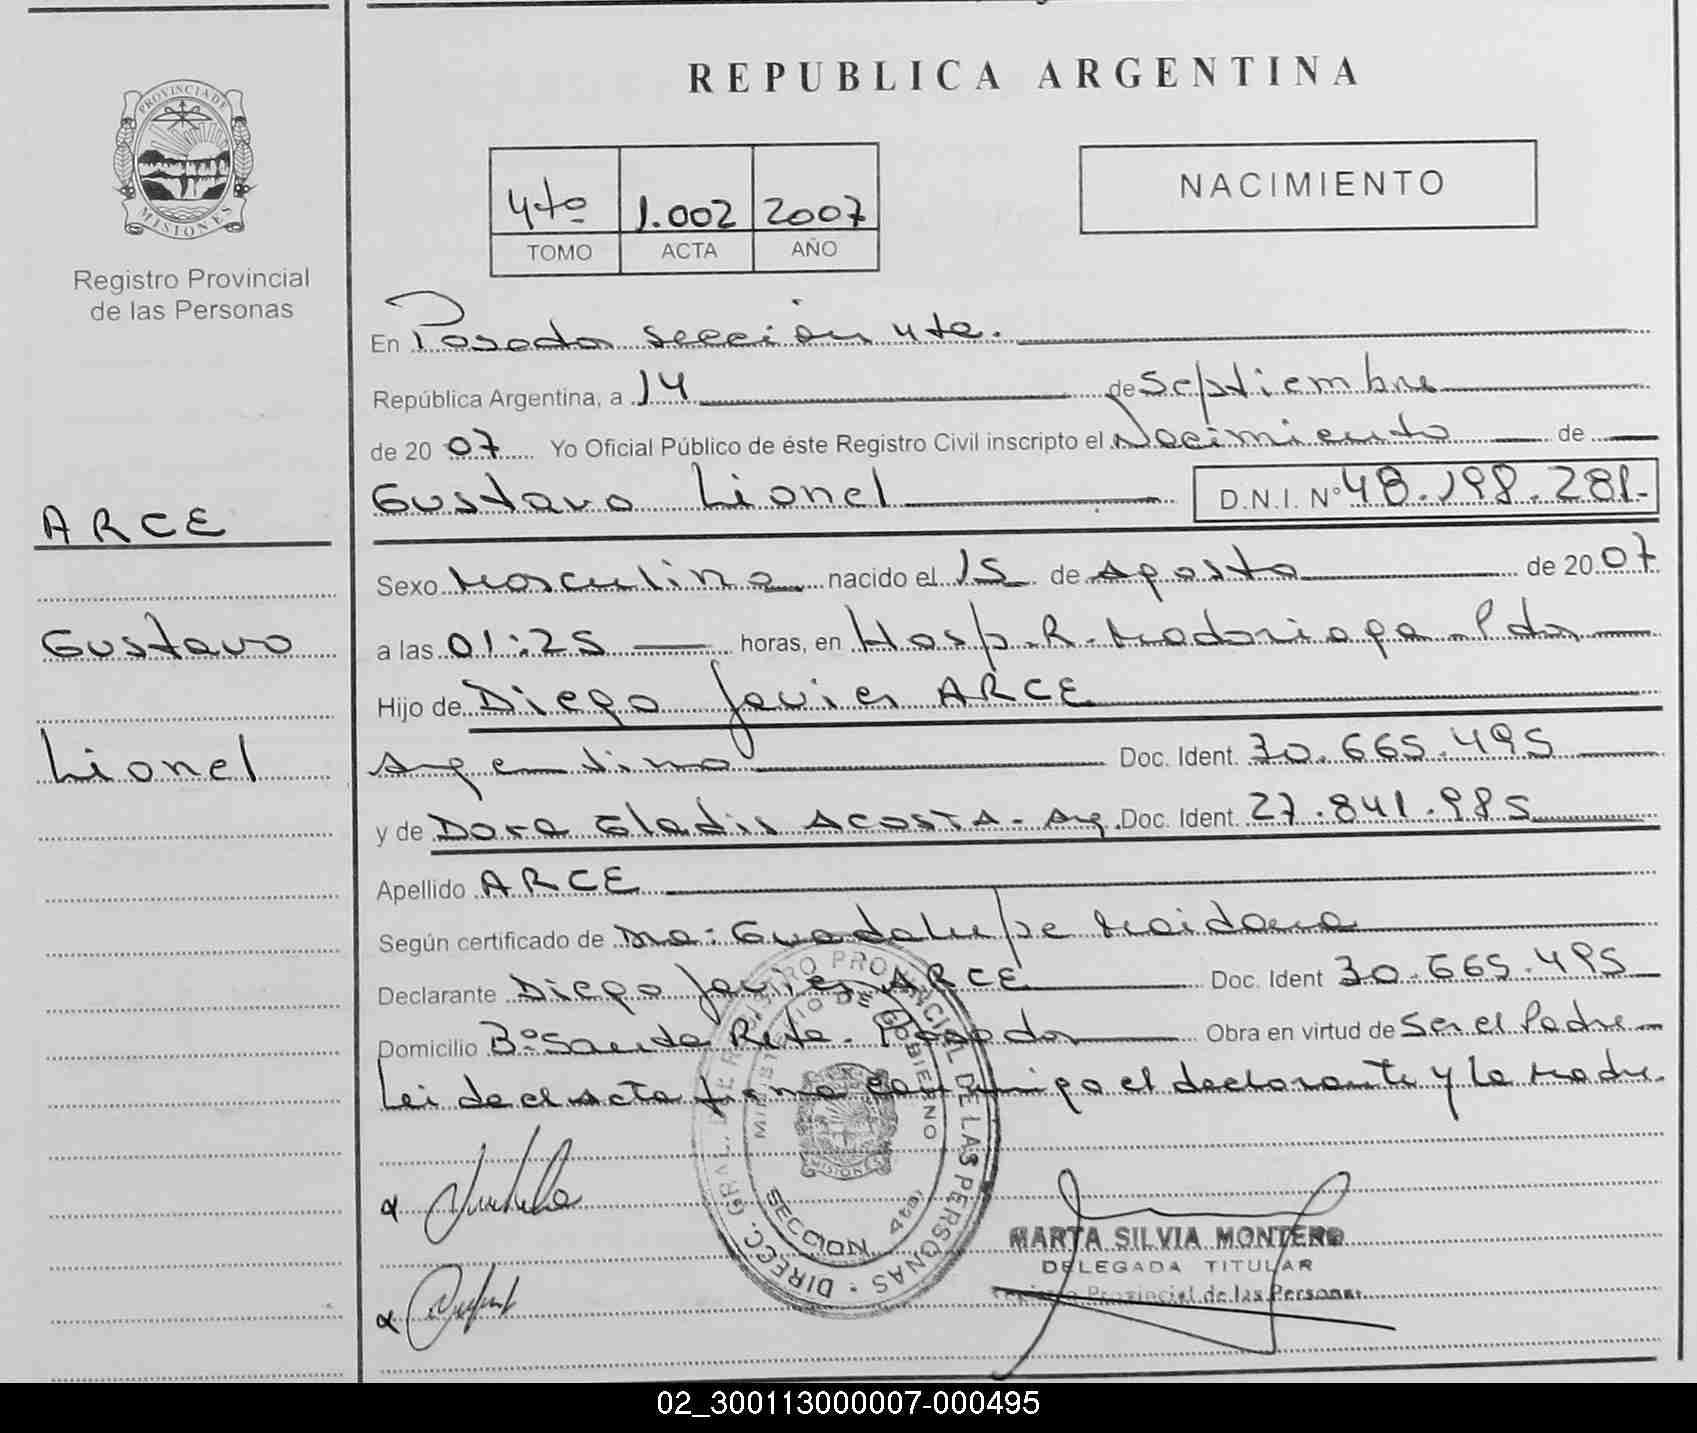 REPUBLICA ARGENTINA
PROVINCIA DE
MISIONES
Registro Provincial
de las Personas
4to 1.002 2007
TOMO ACTA AÑO
NACIMIENTO
En Posadas sección 4ta.
República Argentina, a 14 de Septiembre
de 2007 Yo Oficial Público de éste Registro Civil inscripto el Nacimiento de
Gustavo Lionel D.N.I. Nº 48.198.281.-
ARCE
Gustavo
Lionel
Sexo Masculino nacido el 15 de Agosto de 2007
a las 01:25 horas, en Hosp. R. Madariaga - Pdas
Hijo de Diego Javier ARCE
Argentino Doc. Ident. 30.665.495
y de Dora Gladis ACOSTA - Arg. Doc. Ident. 27.841.985
Apellido ARCE
Según certificado de Ma: Guadalupe Maidana
Declarante Diego Javier ARCE Doc. Ident 30.665.495
Domicilio Bº Santa Rita - Posadas Obra en virtud de Ser el Padre
Leida el Acta firma conmigo el declarante y la Madre.
DIRECC. GRAL. DE REGISTRO PROVINCIAL DE LAS PERSONAS
MINISTERIO DE GOBIERNO
MISIONES
SECCION 4ta.
MARTA SILVIA MONTERO
DELEGADA TITULAR
Registro Provincial de las Personas
02_300113000007-000495